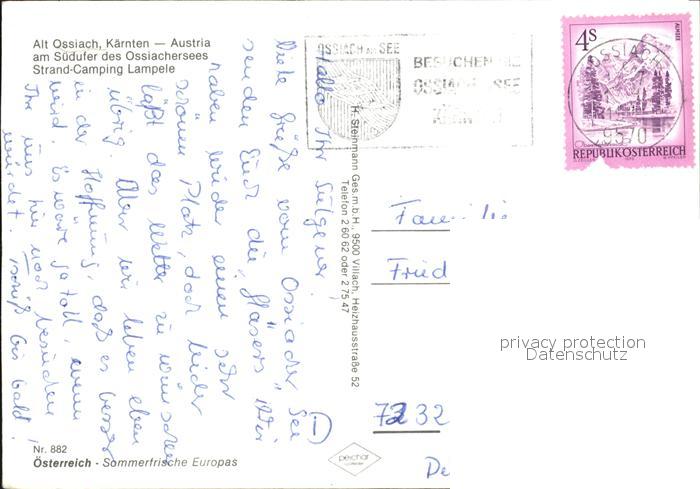 Alt Ossiach, Kärnten — Austria
am Südufer des Ossiachersees
Strand-Camping Lampele
OSSIACH AM SEE
BESUCHEN SIE
OSSIACH SEE
4S
ALMSEE
OSSIACH
9570
REPUBLIK ÖSTERREICH
Hallo Ihr Sulgener!
Viele Grüße vom Ossiacher See
senden Euch die „Gläsers". Wir
haben wieder einen sehr
schönen Platz, doch leider
läßt das Wetter zu wünschen
übrig. Aber wir leben eben
in der Hoffnung, daß es besser
wird. Es wäre ja toll, wenn
Ihr uns hier noch besuchen
würdet. bis bald!
H. Steinmann Ges.m.b.H., 9500 Villach, Heizhausstraße 52
Telefon 2 60 62 oder 2 75 47
Familie
Fried
7232
De
privacy protection
Datenschutz
Nr. 882
Österreich - Sommerfrische Europas